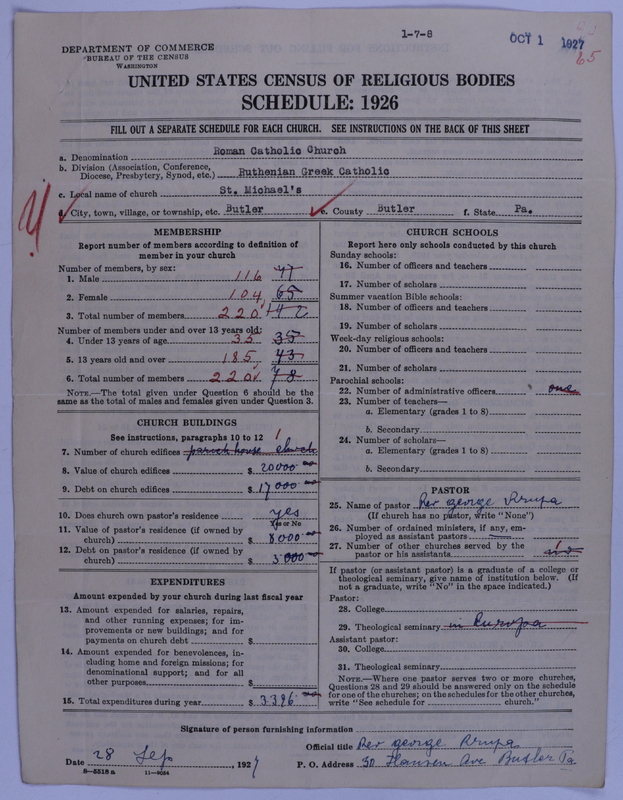 1-7-8
OCT 1 1927
65
DEPARTMENT OF COMMERCE
BUREAU OF THE CENSUS
WASHINGTON
UNITED STATES CENSUS OF RELIGIOUS BODIES
SCHEDULE: 1926
FILL OUT A SEPARATE SCHEDULE FOR EACH CHURCH. SEE INSTRUCTIONS ON THE BACK OF THIS SHEET
a. Denomination Roman Catholic Church
b. Division (Association, Conference, Diocese, Presbytery, Synod, etc.) Ruthenian Greek Catholic
c. Local name of church St. Michael's
d. City, town, village, or township, etc. Butler e. County Butler f. State Pa.
MEMBERSHIP
Report number of members according to definition of member in your church
Number of members, by sex:
1. Male 116 77
2. Female 104 65
3. Total number of members 220 142
Number of members under and over 13 years old:
4. Under 13 years of age 35 35
5. 13 years old and over 185 43
6. Total number of members 220 78
NOTE.—The total given under Question 6 should be the same as the total of males and females given under Question 3.
CHURCH BUILDINGS
See instructions, paragraphs 10 to 12
7. Number of church edifices parish house church 1
8. Value of church edifices $ 20000 00
9. Debt on church edifices $ 17000 00
10. Does church own pastor's residence yes
Yes or No
11. Value of pastor's residence (if owned by church) $ 8000 00
12. Debt on pastor's residence (if owned by church) $ 3000 00
EXPENDITURES
Amount expended by your church during last fiscal year
13. Amount expended for salaries, repairs, and other running expenses; for improvements or new buildings; and for payments on church debt $
14. Amount expended for benevolences, including home and foreign missions; for denominational support; and for all other purposes $
15. Total expenditures during year $ 3396
CHURCH SCHOOLS
Report here only schools conducted by this church
Sunday schools:
16. Number of officers and teachers
17. Number of scholars
Summer vacation Bible schools:
18. Number of officers and teachers
19. Number of scholars
Week-day religious schools:
20. Number of officers and teachers
21. Number of scholars
Parochial schools:
22. Number of administrative officers one
23. Number of teachers—
a. Elementary (grades 1 to 8)
b. Secondary
24. Number of scholars—
a. Elementary (grades 1 to 8)
b. Secondary
PASTOR
25. Name of pastor Rev george Krupa
(If church has no pastor, write "None")
26. Number of ordained ministers, if any, employed as assistant pastors
27. Number of other churches served by the pastor or his assistants
If pastor (or assistant pastor) is a graduate of a college or theological seminary, give name of institution below. (If not a graduate, write "No" in the space indicated.)
Pastor:
28. College
29. Theological seminary in Europa
Assistant pastor:
30. College
31. Theological seminary
NOTE.—Where one pastor serves two or more churches, Questions 28 and 29 should be answered only on the schedule for one of the churches; on the schedules for the other churches, write "See schedule for church."
Signature of person furnishing information
Official title Rev george Krupa
Date 28 Sep, 1927 P. O. Address 50 Hansen Ave Butler Pa
8-5518a 11-9054